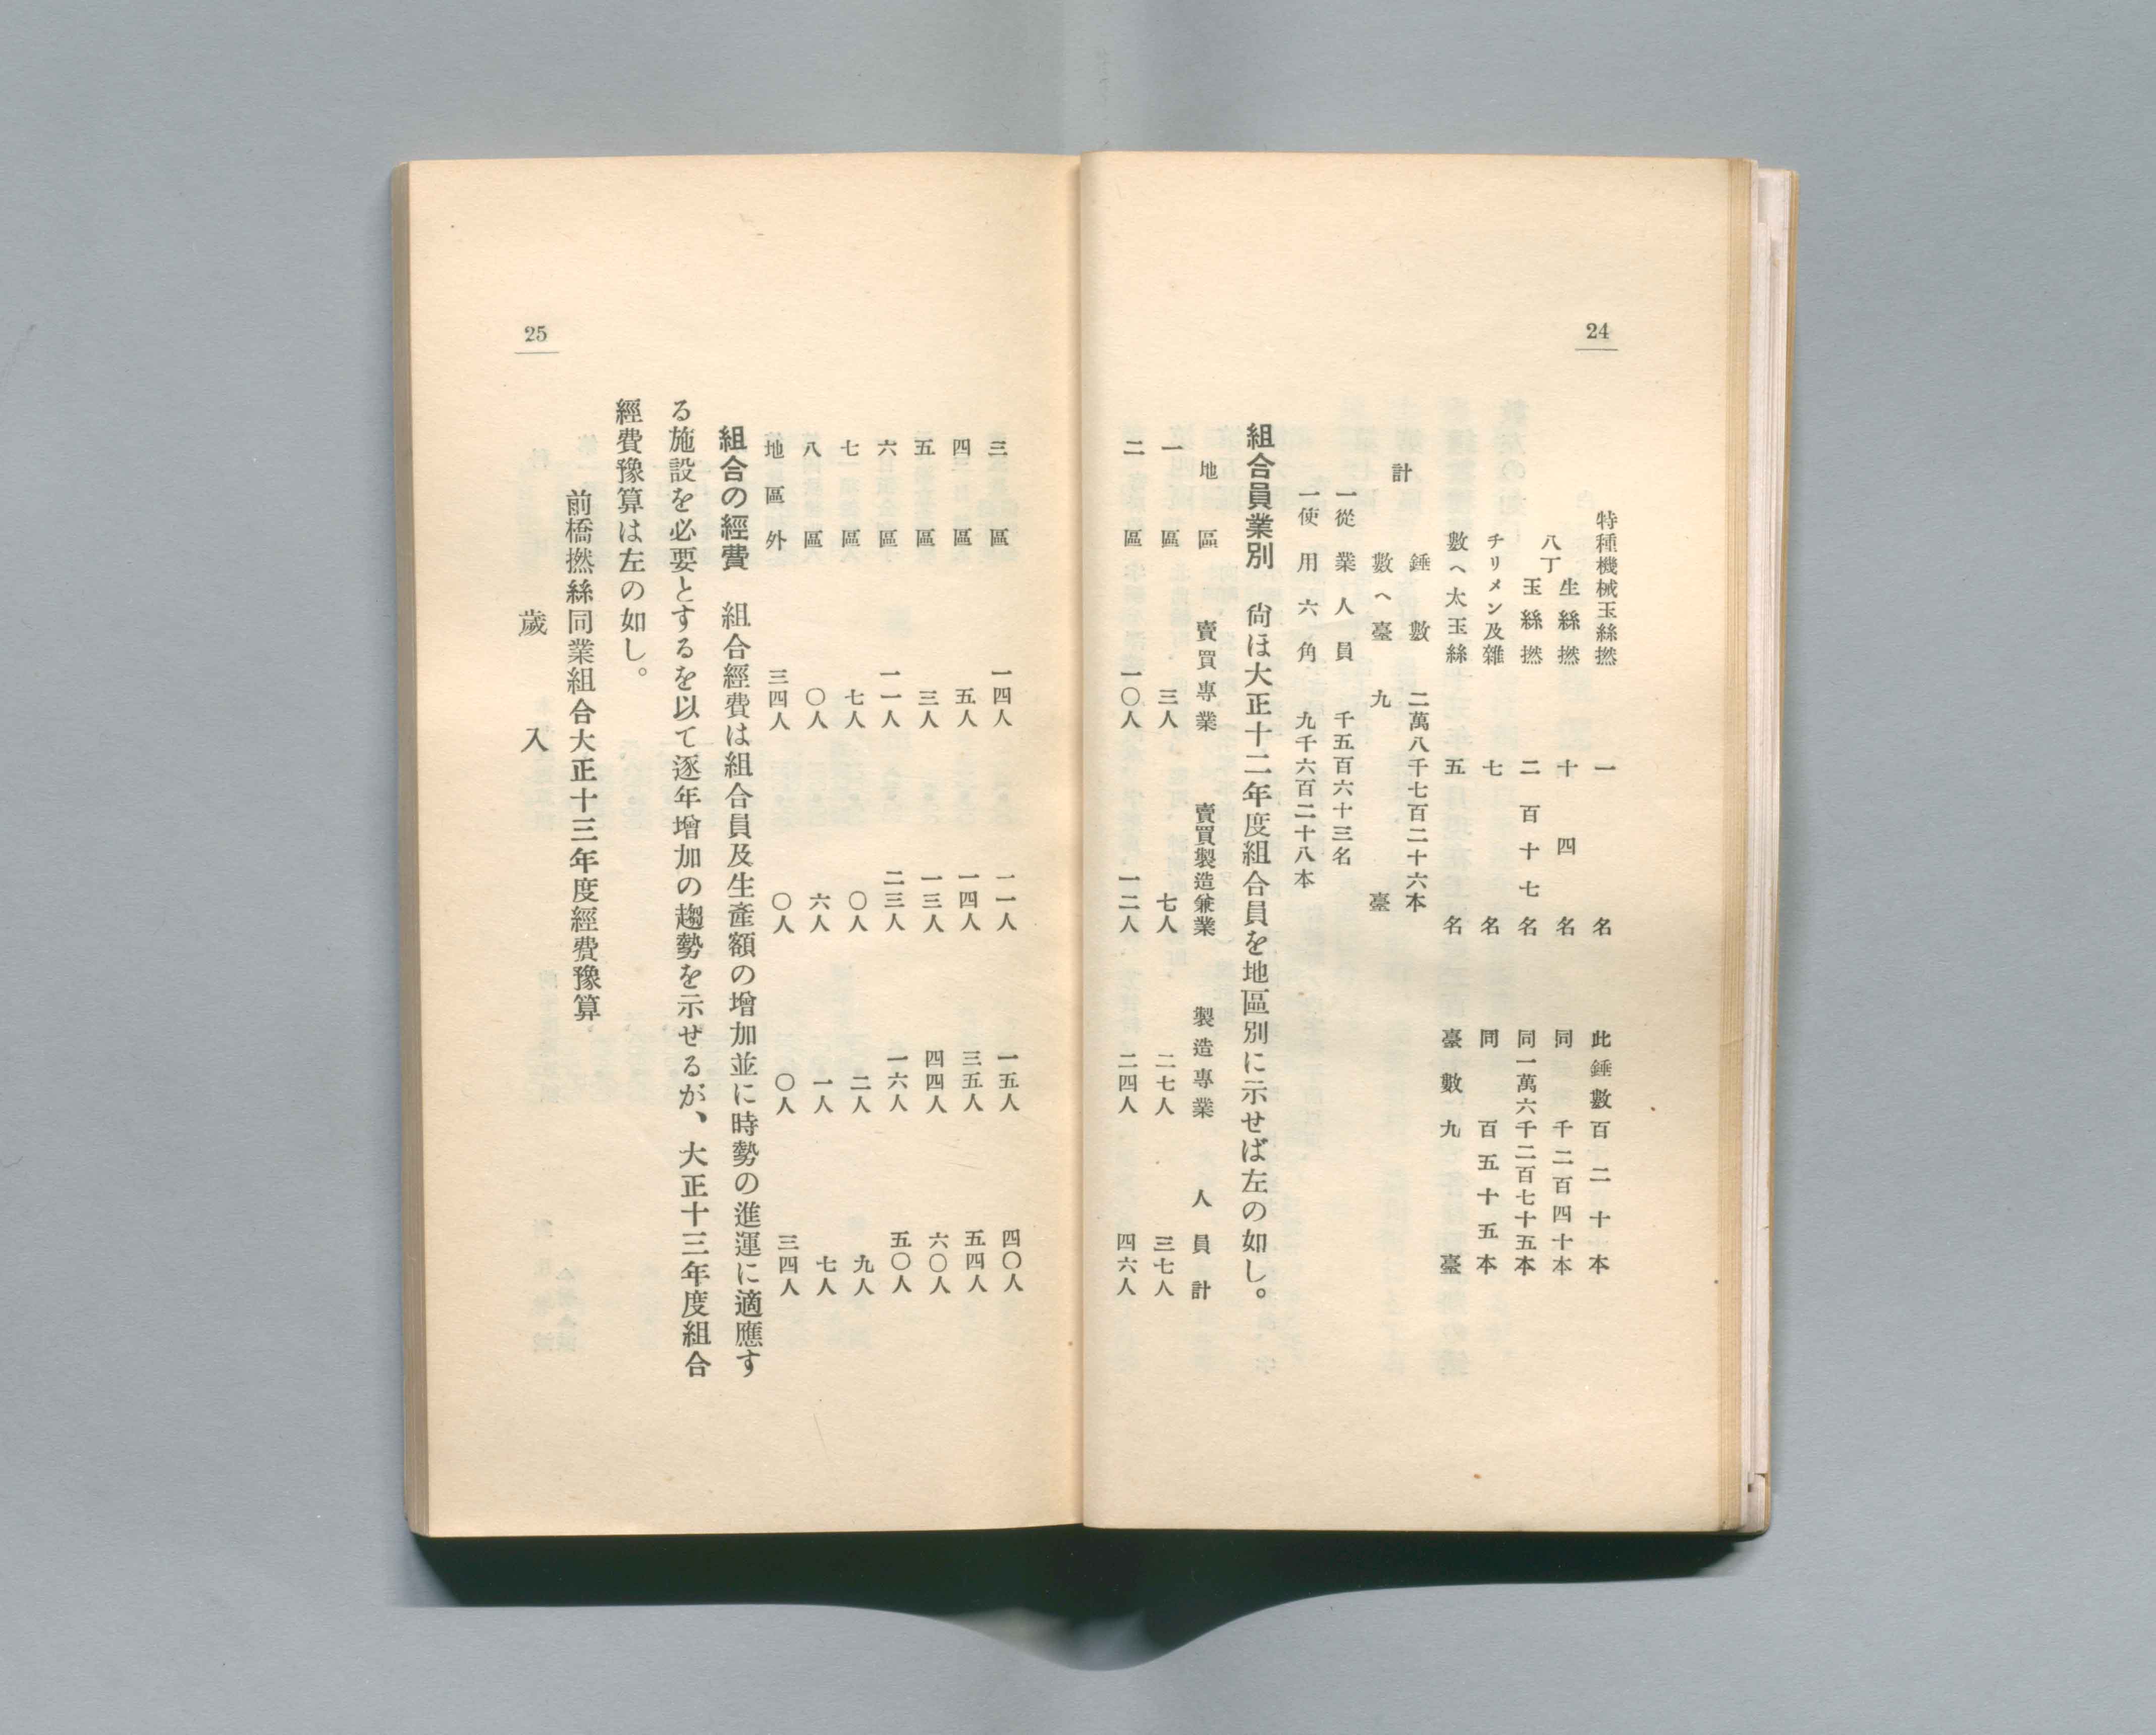 24
特種機械玉絲撚 一名 此錘數百二十本
八丁 生絲撚 十四名 同 千二百四十本
玉絲撚 二百十七名 同一萬六千二百七十五本
チリメン及雜 七名 同 百五十五本
數へ太玉絲 五名 臺數九臺
計 錘數 二萬八千七百二十六本
數へ臺 九臺
一從業人員 千五百六十三名
一使用六角 九千六百二十八本
組合員業別 尙ほ大正十二年度組合員を地區別に示せば左の如し。
地區 賣買專業 賣買製造兼業 製造專業 人員計
一區 三人 七人 二七人 三七人
二區 一〇人 一二人 二四人 四六人
三區 一四人 一一人 一五人 四〇人
四區 五人 一四人 三五人 五四人
五區 三人 一三人 四四人 六〇人
六區 一一人 二三人 一六人 五〇人
七區 七人 〇人 二人 九人
八區 〇人 六人 一人 七人
地區外 三四人 〇人 〇人 三四人
組合の經費 組合經費は組合員及生產額の增加並に時勢の進運に適應す
る施設を必要とするを以て逐年增加の趨勢を示せるが、大正十三年度組合
經費豫算は左の如し。
前橋撚絲同業組合大正十三年度經費豫算
歲入
25